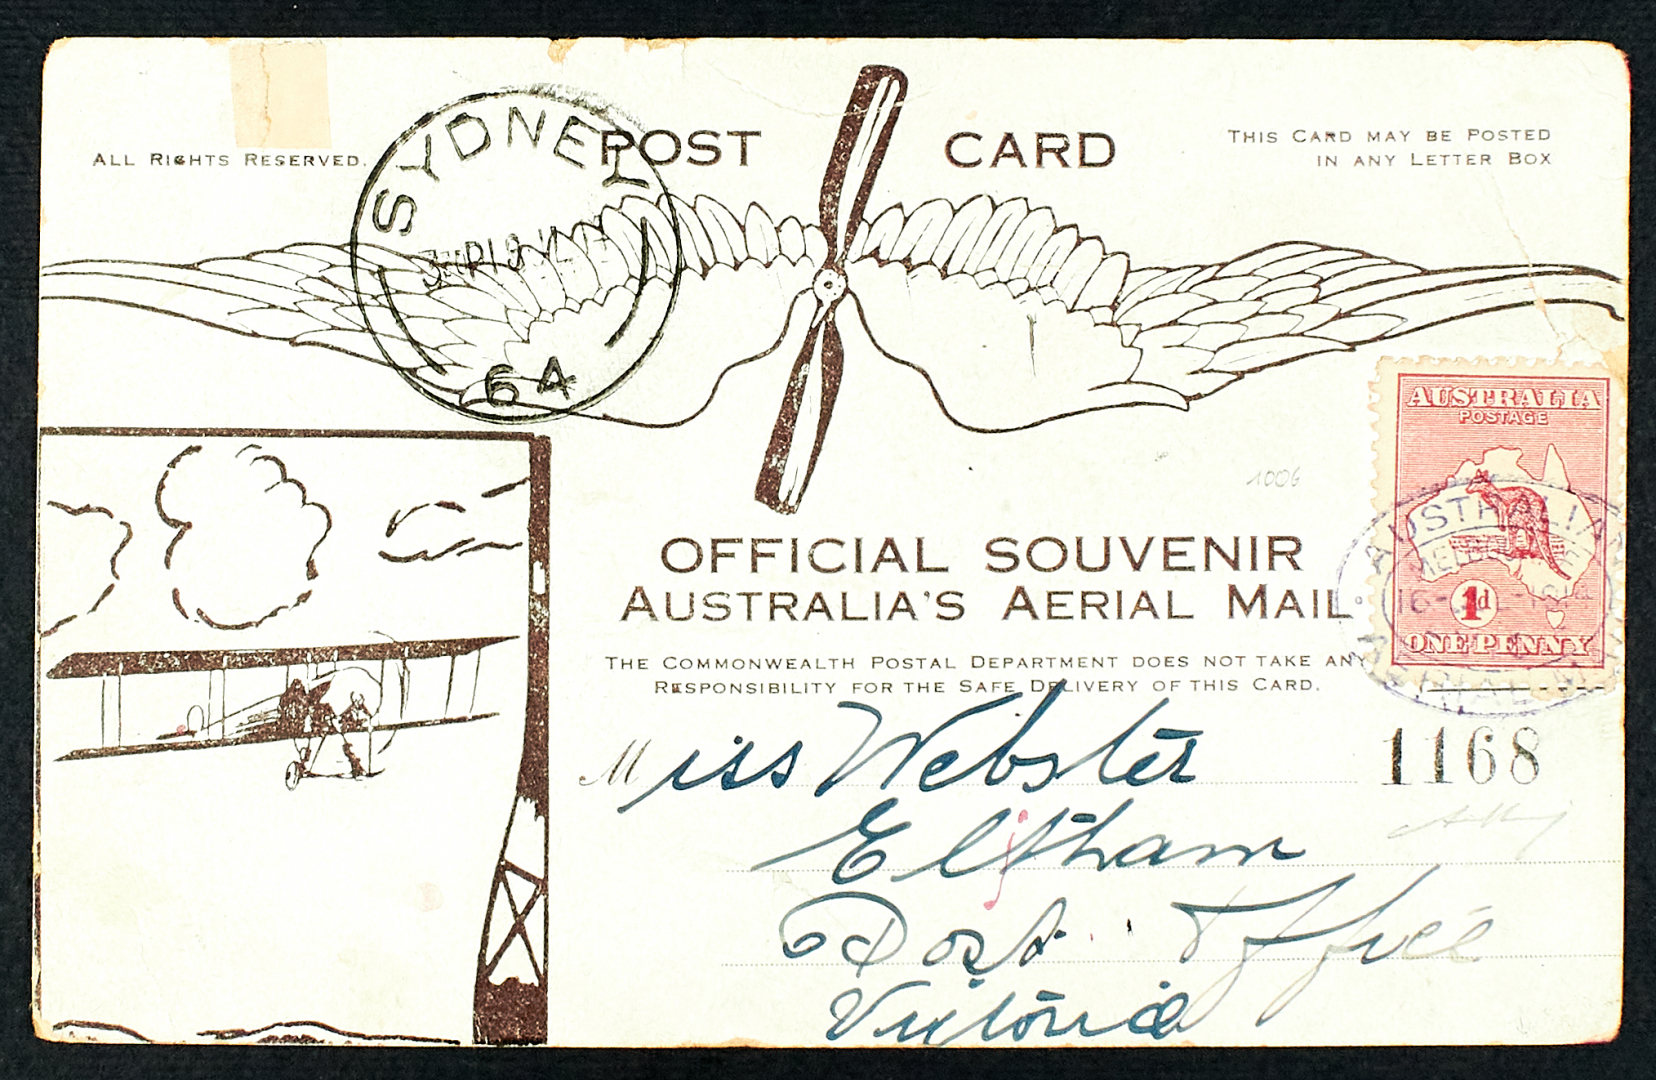 ALL RIGHTS RESERVED.
POST CARD
THIS CARD MAY BE POSTED
IN ANY LETTER BOX
SYDNEY
64
AUSTRALIA
POSTAGE
1d
ONE PENNY
AUSTRALIA
16-
1006
OFFICIAL SOUVENIR
AUSTRALIA'S AERIAL MAIL
THE COMMONWEALTH POSTAL DEPARTMENT DOES NOT TAKE ANY
RESPONSIBILITY FOR THE SAFE DELIVERY OF THIS CARD.
Miss Webster
1168
Eltham
Post Office
Victoria